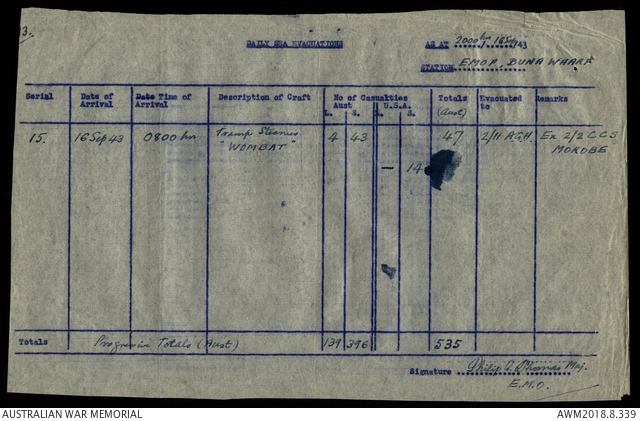 3.
DAILY SEA EVACUATIONS
AS AT 2000 hrs 16 Sep/43
STATION E.M.O.P. BUNA WHARF
Serial Date of Arrival Date Time of Arrival Description of Craft No of Casualties Aust U.S.A. Totals (Aust) Evacuated to Remarks
L. S. L. S.
15. 16 Sep 43 0800 hrs Tramp Steamer 4 43 47 2/11 A.G.H. Ex 2/2 C.C.S
"WOMBAT" MOROBE
— 14
Totals Progressive Totals (Aust) 139 396 535
Signature Philip A. Thomas Maj.
E.M.O.
AUSTRALIAN WAR MEMORIAL AWM2018.8.339